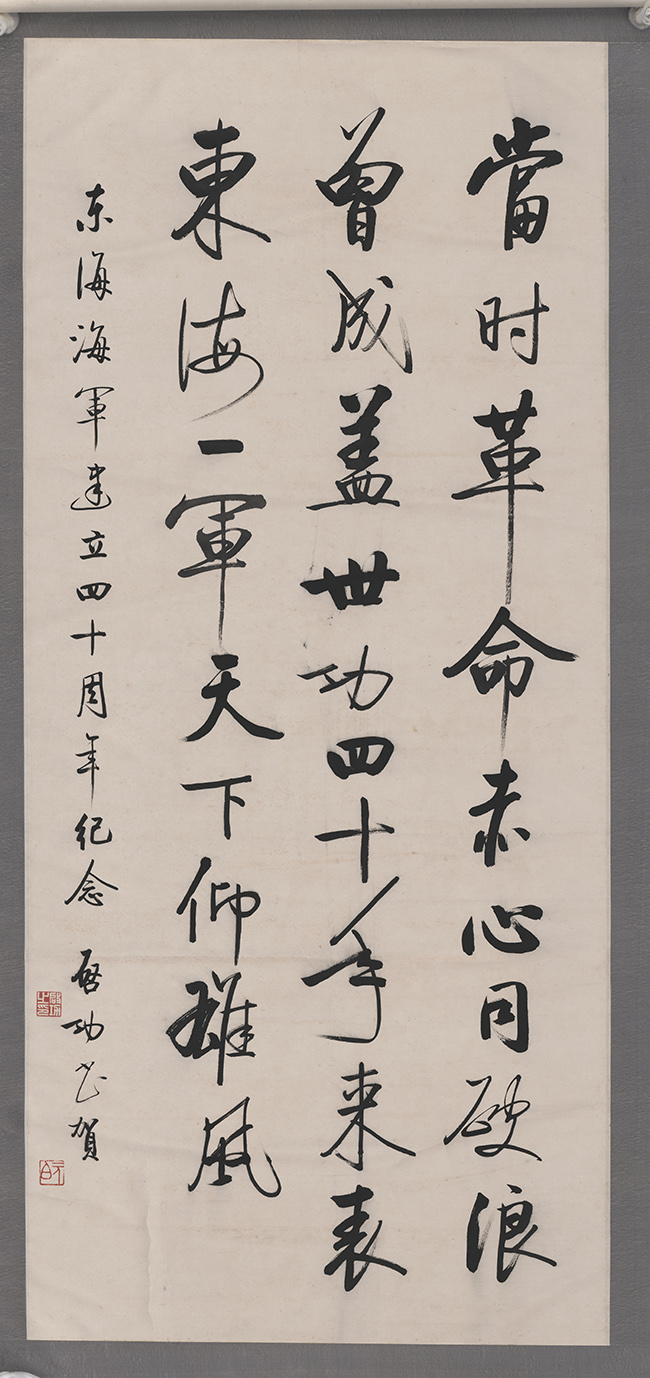 當时革命赤心同破浪
曾成盖世功四十年来表
東海一軍天下仰雄風
东海海軍建立四十周年纪念 啓功书賀
啓功之印
元白